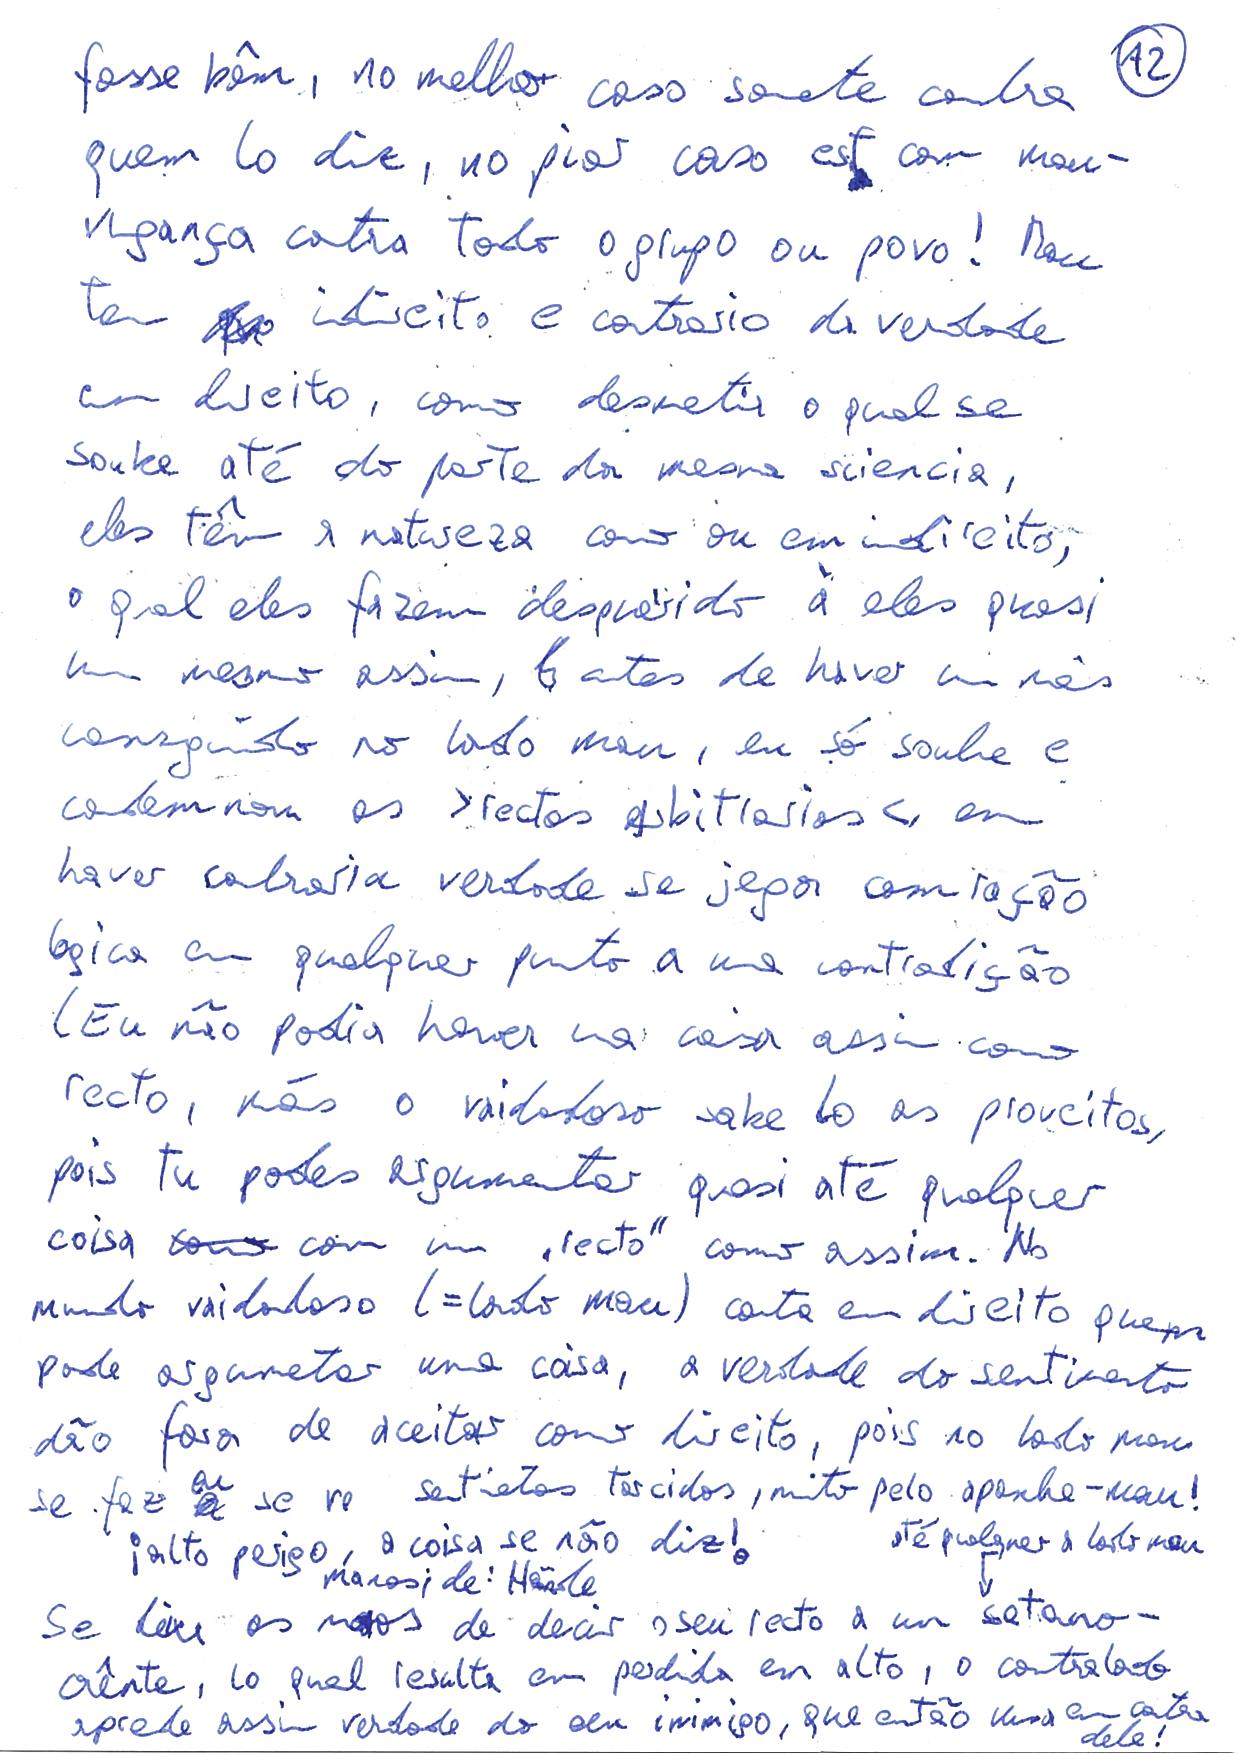 12
fosse bêm, no melhor caso somete contra
quem lo diz, no pior caso est com mau-
vigança contra todo o grupo ou povo! Mau
tem indireito e contrario da verdade
em direito, como desmetir o qual se
souke até do parte da mesma sciencia,
eles têm a natureza como ou em indireito,
o qual eles fazem desparido à eles quasi
um mesmo assim, antes de haver um mês
conseguido no lado mau, eu só souhe e
codemnom os >rectos arbitrarios<, em
haver contraria verdade se jegar com ração
logica em qualquer punto a uma contradição
(Eu não podia haver uma coisa assim como
recto, más o vaidadoso sake lo as proveitos,
pois tu podes argumentar quasi até qualquer
coisa com um „recto" como assim. No
mundo vaidadoso (=lado mau) conta em direito quem
pode argumetar uma coisa, a verdade do sentimento
dão fora de aceitar como direito, pois no lado mau
se faz ou se ve sentietos torcidos, muito pelo apanha-mau!
¡alto perigo, a coisa se não diz!
até qualquer a lado mau
manos; de: Hände
Se tem os de decir o seu recto a um satano-
crênte, lo qual resulta em perdida em alto, o contralado
aprede assim verdade do seu inimigo, que então usa em contra
dele!